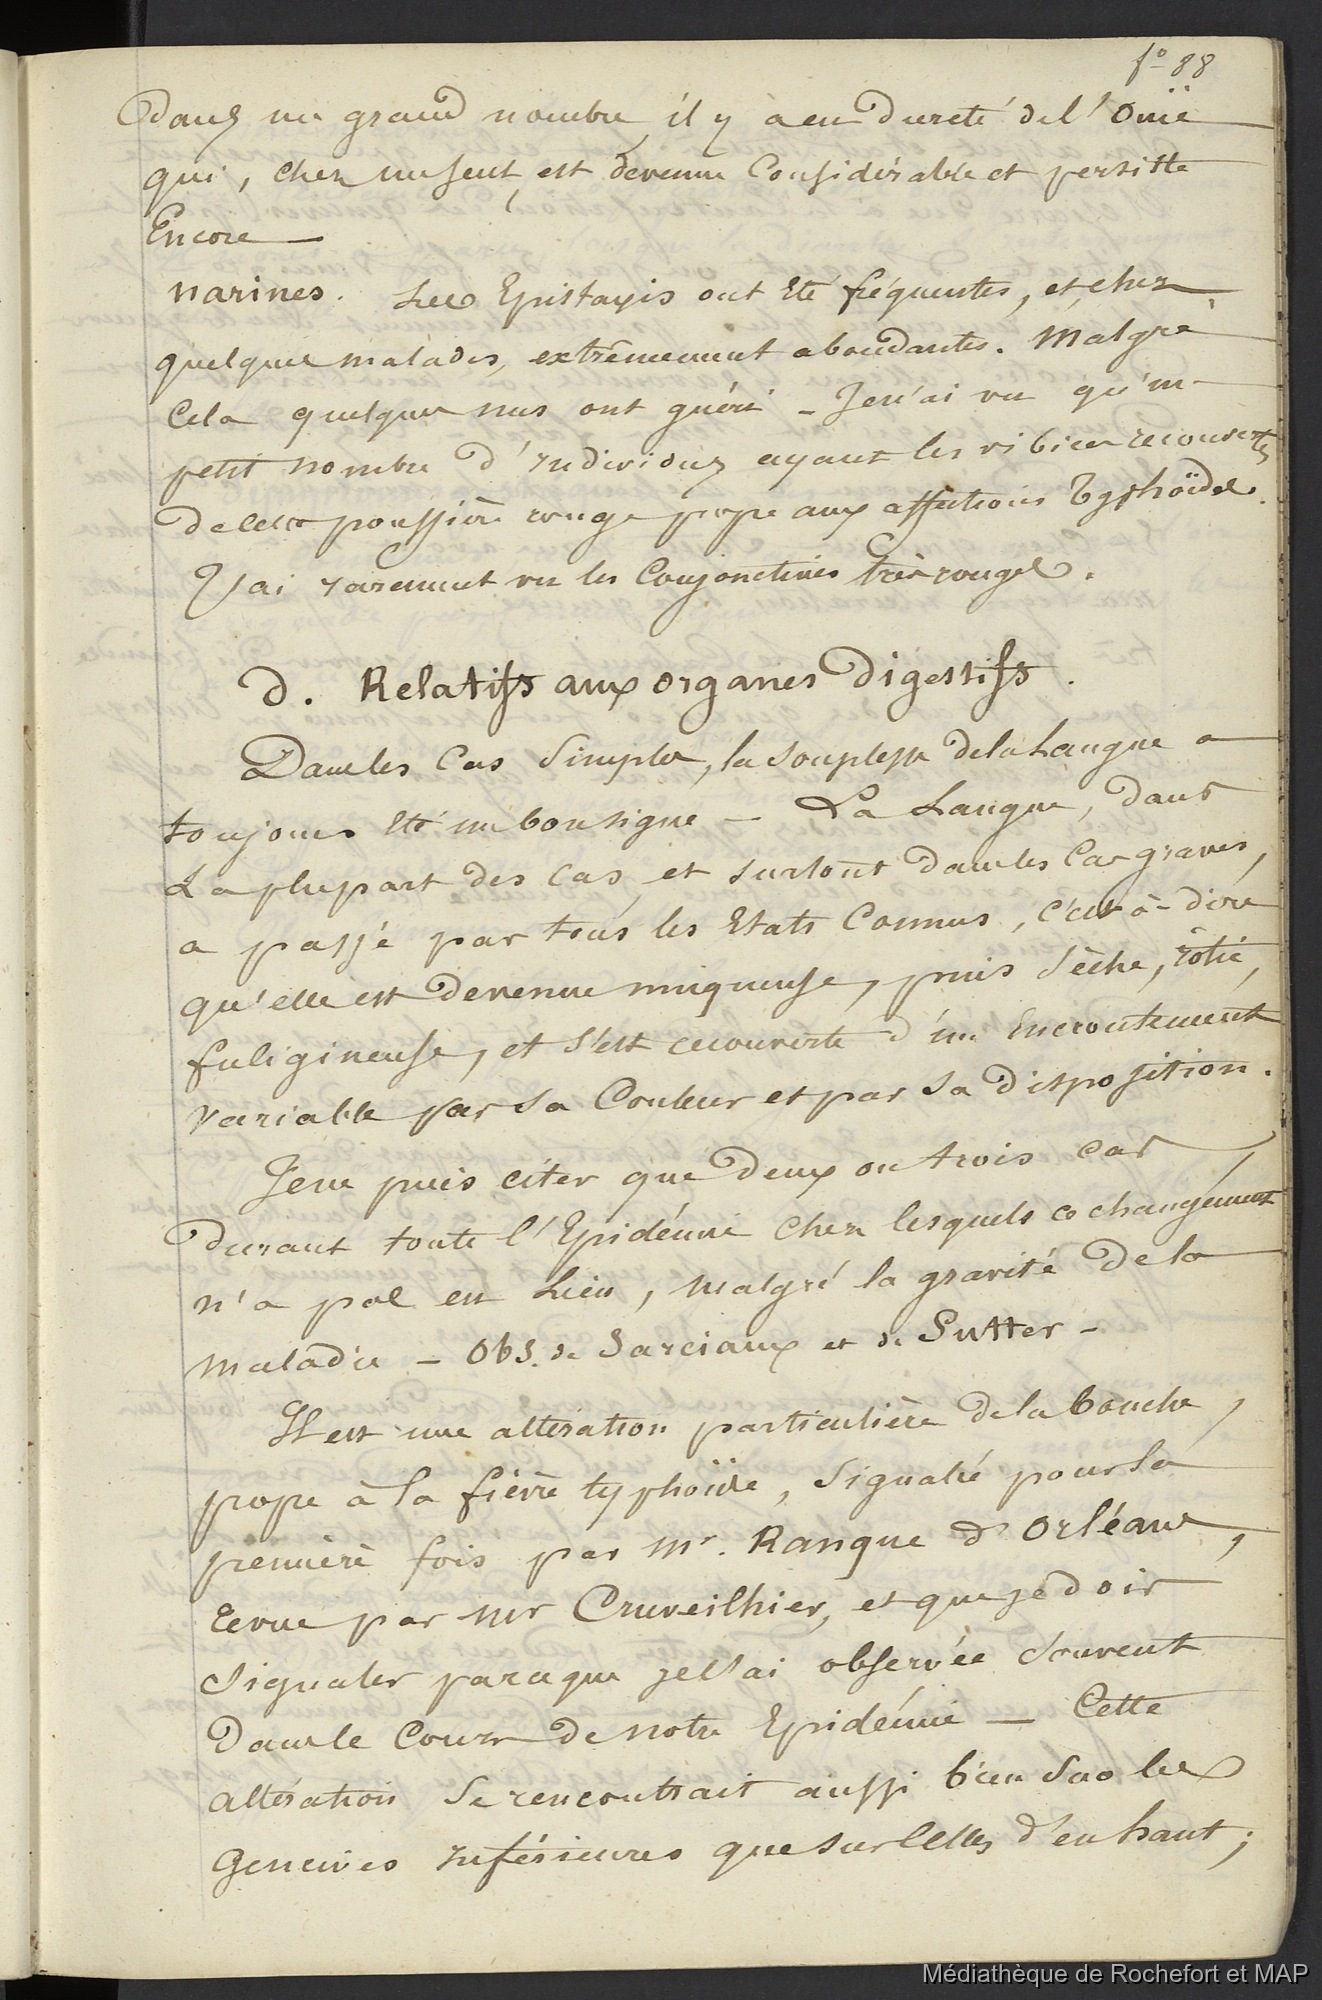 fo 88
Dans un grand nombre, il y à eu Dureté de l'Ouïe
qui, chez un seul, est devenue Considérable et persiste
Encore —
narines. Les Epistaxis ont Eté fréquentes, et chez
quelques malades, extrêmement abondantes. Malgré
Cela quelques uns ont guéri – Je n'ai vu qu'un
petit nombre d'Individus ayant les vibices recouvertes
de cette poussière rouge propre aux affections Typhoïdes.
J'ai rarement vu les Conjonctives très rouges.
D. Relatifs aux organes Digestifs.
Dans les Cas Simples, la souplesse de la Langue a
toujours Eté un bon signe – La Langue, dans
La plupart des Cas, et surtout Dans les Cas graves,
a passé par tous les Etats Connus, c'est-à-dire
qu'elle est Devenue muqueuse, puis Sèche, rôtie,
fuligineuse, et s'est recouverte d'un Encroutement
Variable par sa Couleur et par sa Disposition.
Je ne puis citer que Deux ou trois cas,
Durant toute l'Epidémie chez lesquels ce changement
n'a pas eu Lieu, malgré la gravité De la
maladie – Obs. de Sarciaux et de Sutter –
Il est une altération particulière De la bouche,
propre à la fièvre typhoïde, Signalée pour la
première fois par Mr. Ranque d'Orléans,
revue par Mr Cruveilhier, et que je dois
signaler parceque je l'ai observée Souvent
Dans le Cours De notre Epidémie — Cette
altération Se rencontrait aussi bien Sur les
Gencives Inférieures que sur Celles d'en haut;
Médiathèque de Rochefort et MAP